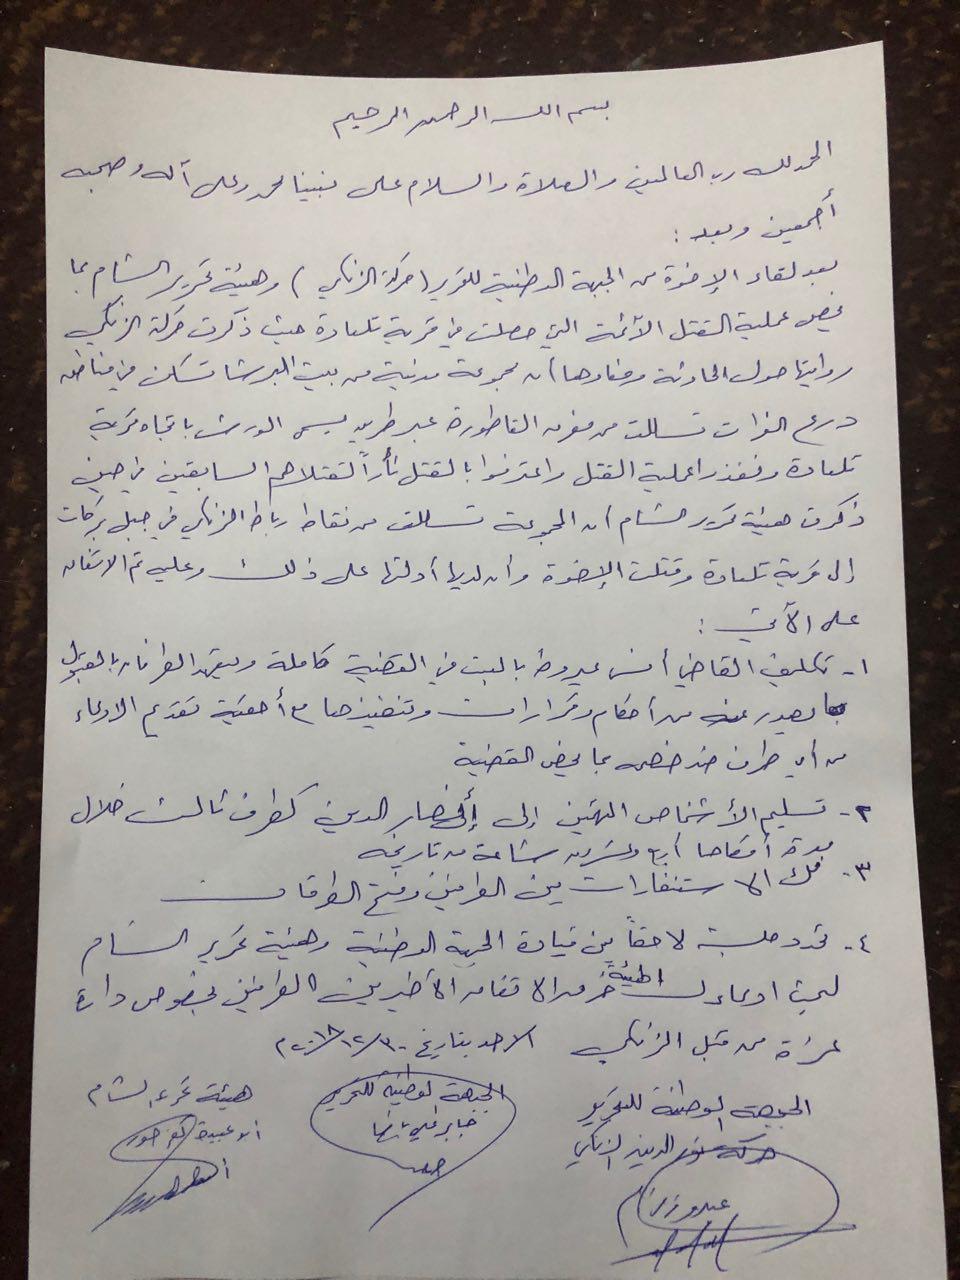 بسم الله الرحمن الرحيم
الحمد لله رب العالمين والصلاة والسلام على نبينا محمد وعلى آله وصحبه
أجمعين وبعد:
بعد لقاء الإخوة من الجبهة الوطنية للتحرير (حركة الزنكي) وهيئة تحرير الشام بما
يخص عملية القتل الآثمة التي حصلت في قرية تلعادة حيث ذكرت حركة الزنكي
روايتها حول الحادثة ومفادها أن مجموعة مدنية من بيت البرشا تسكن في مناطق
درع الفرات تسللت من مفرق القاطورة عبر طريق يسمى الورش باتجاه قرية
تلعادة ونفذوا عملية القتل واعترفوا بالقتل ثأراً لقتلاهم السابقين في حين
ذكرت هيئة تحرير الشام أن المجموعة تسللت من نقاط رباط الزنكي في جبل بركات
إلى قرية تلعادة وقتلت الإخوة وأن لديها أدلتها على ذلك وعليه تم الاتفاق
على الآتي:
١- تكليف القاضي أنس عيروط بالبت في القضية كاملة ويتعهد الطرفان بالقبول
بما يصدر عنه من أحكام وقرارات وتنفيذها مع أحقية تقديم الادعاء
من أي طرف ضد خصمه بما يخص القضية
٢- تسليم الأشخاص المتهمين إلى أنصار الدين كطرف ثالث خلال
مدة أقصاها أربع وعشرين ساعة من تاريخه
٣- فك الاستنفارات بين الطرفين وفتح الطرقات
٤- تحدد جلسة لاحقاً بين قيادة الجبهة الوطنية وهيئة تحرير الشام
لبحث ادعاءات الهيئة خرق الاتفاق الأخير بين الطرفين بخصوص دارة
عزة من قبل الزنكي الاحد بتاريخ ٢٠١٨/١٢/٣٠ م
الجبهة الوطنية للتحرير
حركة نور الدين الزنكي
الجبهة الوطنية للتحرير
جابر علي باشا
هيئة تحرير الشام